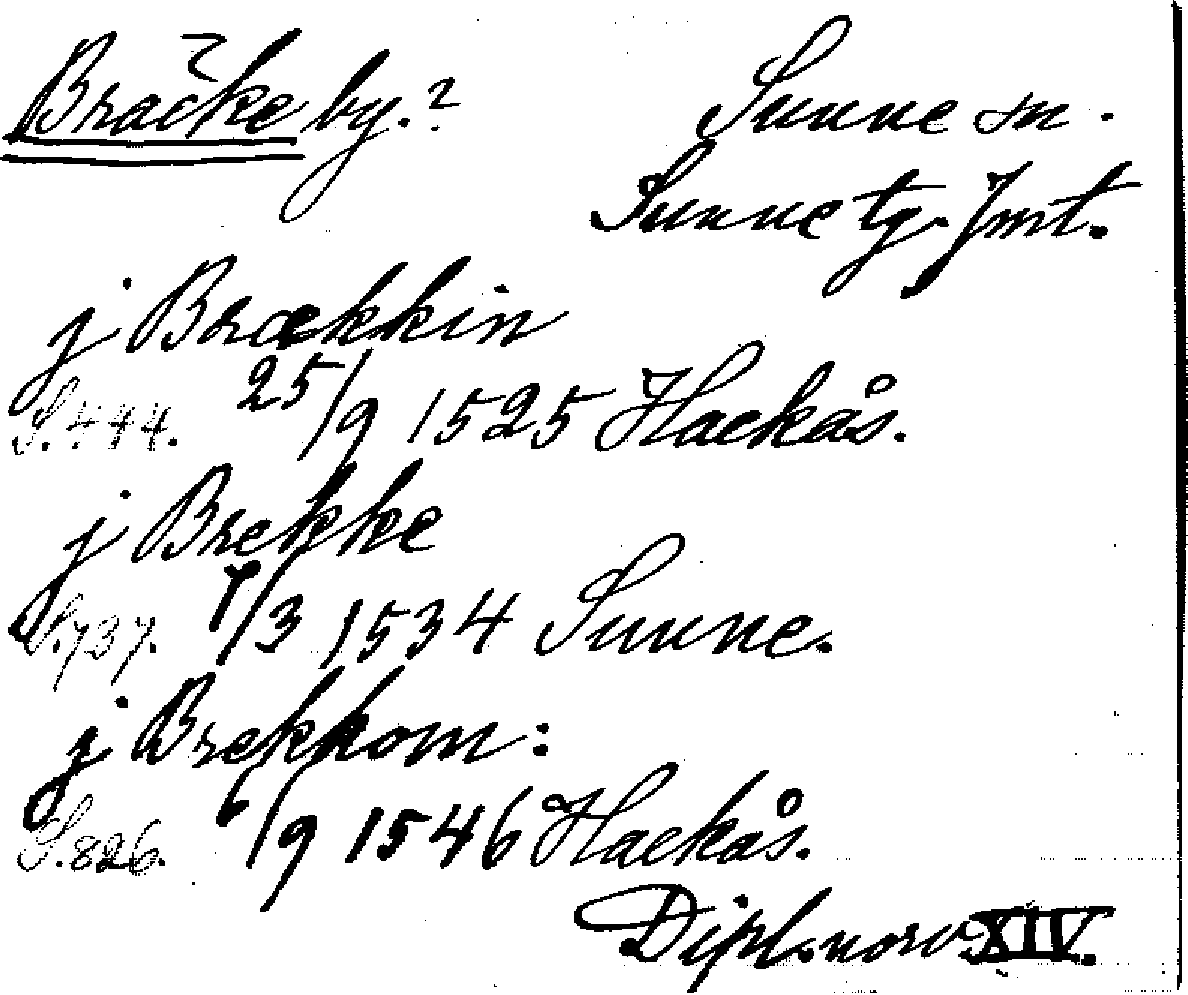 Bräcke by.?
Sunne sn.
Sunne tg. Jmt.
j Brækkin
S. 444. 25/9 1525 Hackås.
j Brekke
S. 737. 7/3 1534 Sunne.
j Brekkom:
S. 826. 6/9 1546 Hackås.
Dipl. norv XIV.